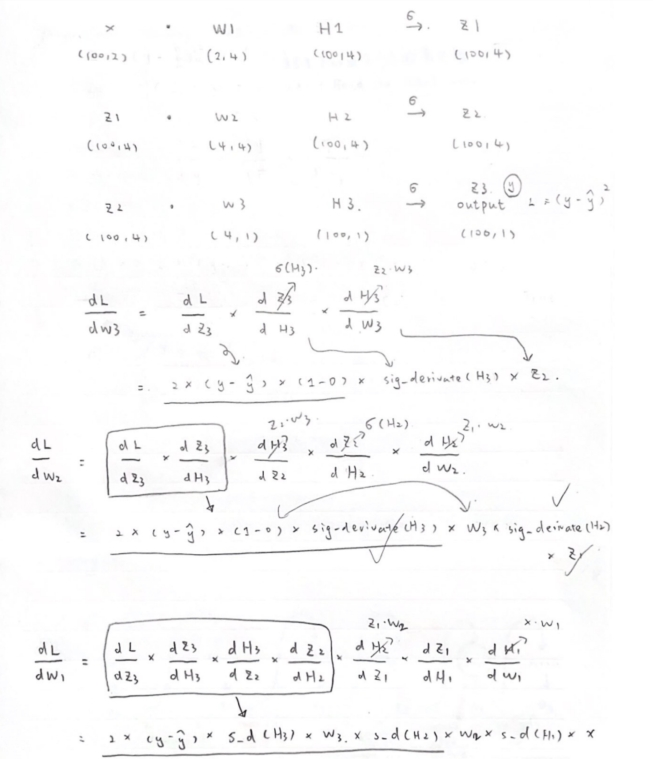 x · W1 H1 σ→ Z1
(100,2) (2,4) (100,4) (100,4)
Z1 · W2 H2 σ→ Z2
(100,4) (4,4) (100,4) (100,4)
Z2 · W3 H3. σ→ Z3 y
output L = (y-ŷ)²
(100,4) (4,1) (100,1) (100,1)
σ(H3). Z2·W3
dL/dW3 = dL/dZ3 × dZ3/dH3 × dH3/dW3
= 2 × (y-ŷ) × (1-0) × sig-derivate(H3) × Z2.
Z2·W3. σ(H2) Z1·W2
dL/dW2 = dL/dZ3 × dZ3/dH3 × dH3/dZ2 × dZ2/dH2. × dH2/dW2.
= 2 × (y-ŷ) × (1-0) × sig-derivate(H3) × W3 × sig-derivate(H2)
× Z1
Z1·W2 x·W1
dL/dW1 = dL/dZ3 × dZ3/dH3 × dH3/dZ2 × dZ2/dH2 × dH2/dZ1 × dZ1/dH1 × dH1/dW1
= 2 × (y-ŷ) × s_d(H3) × W3. × s_d(H2) × W2 × s_d(H1) × x